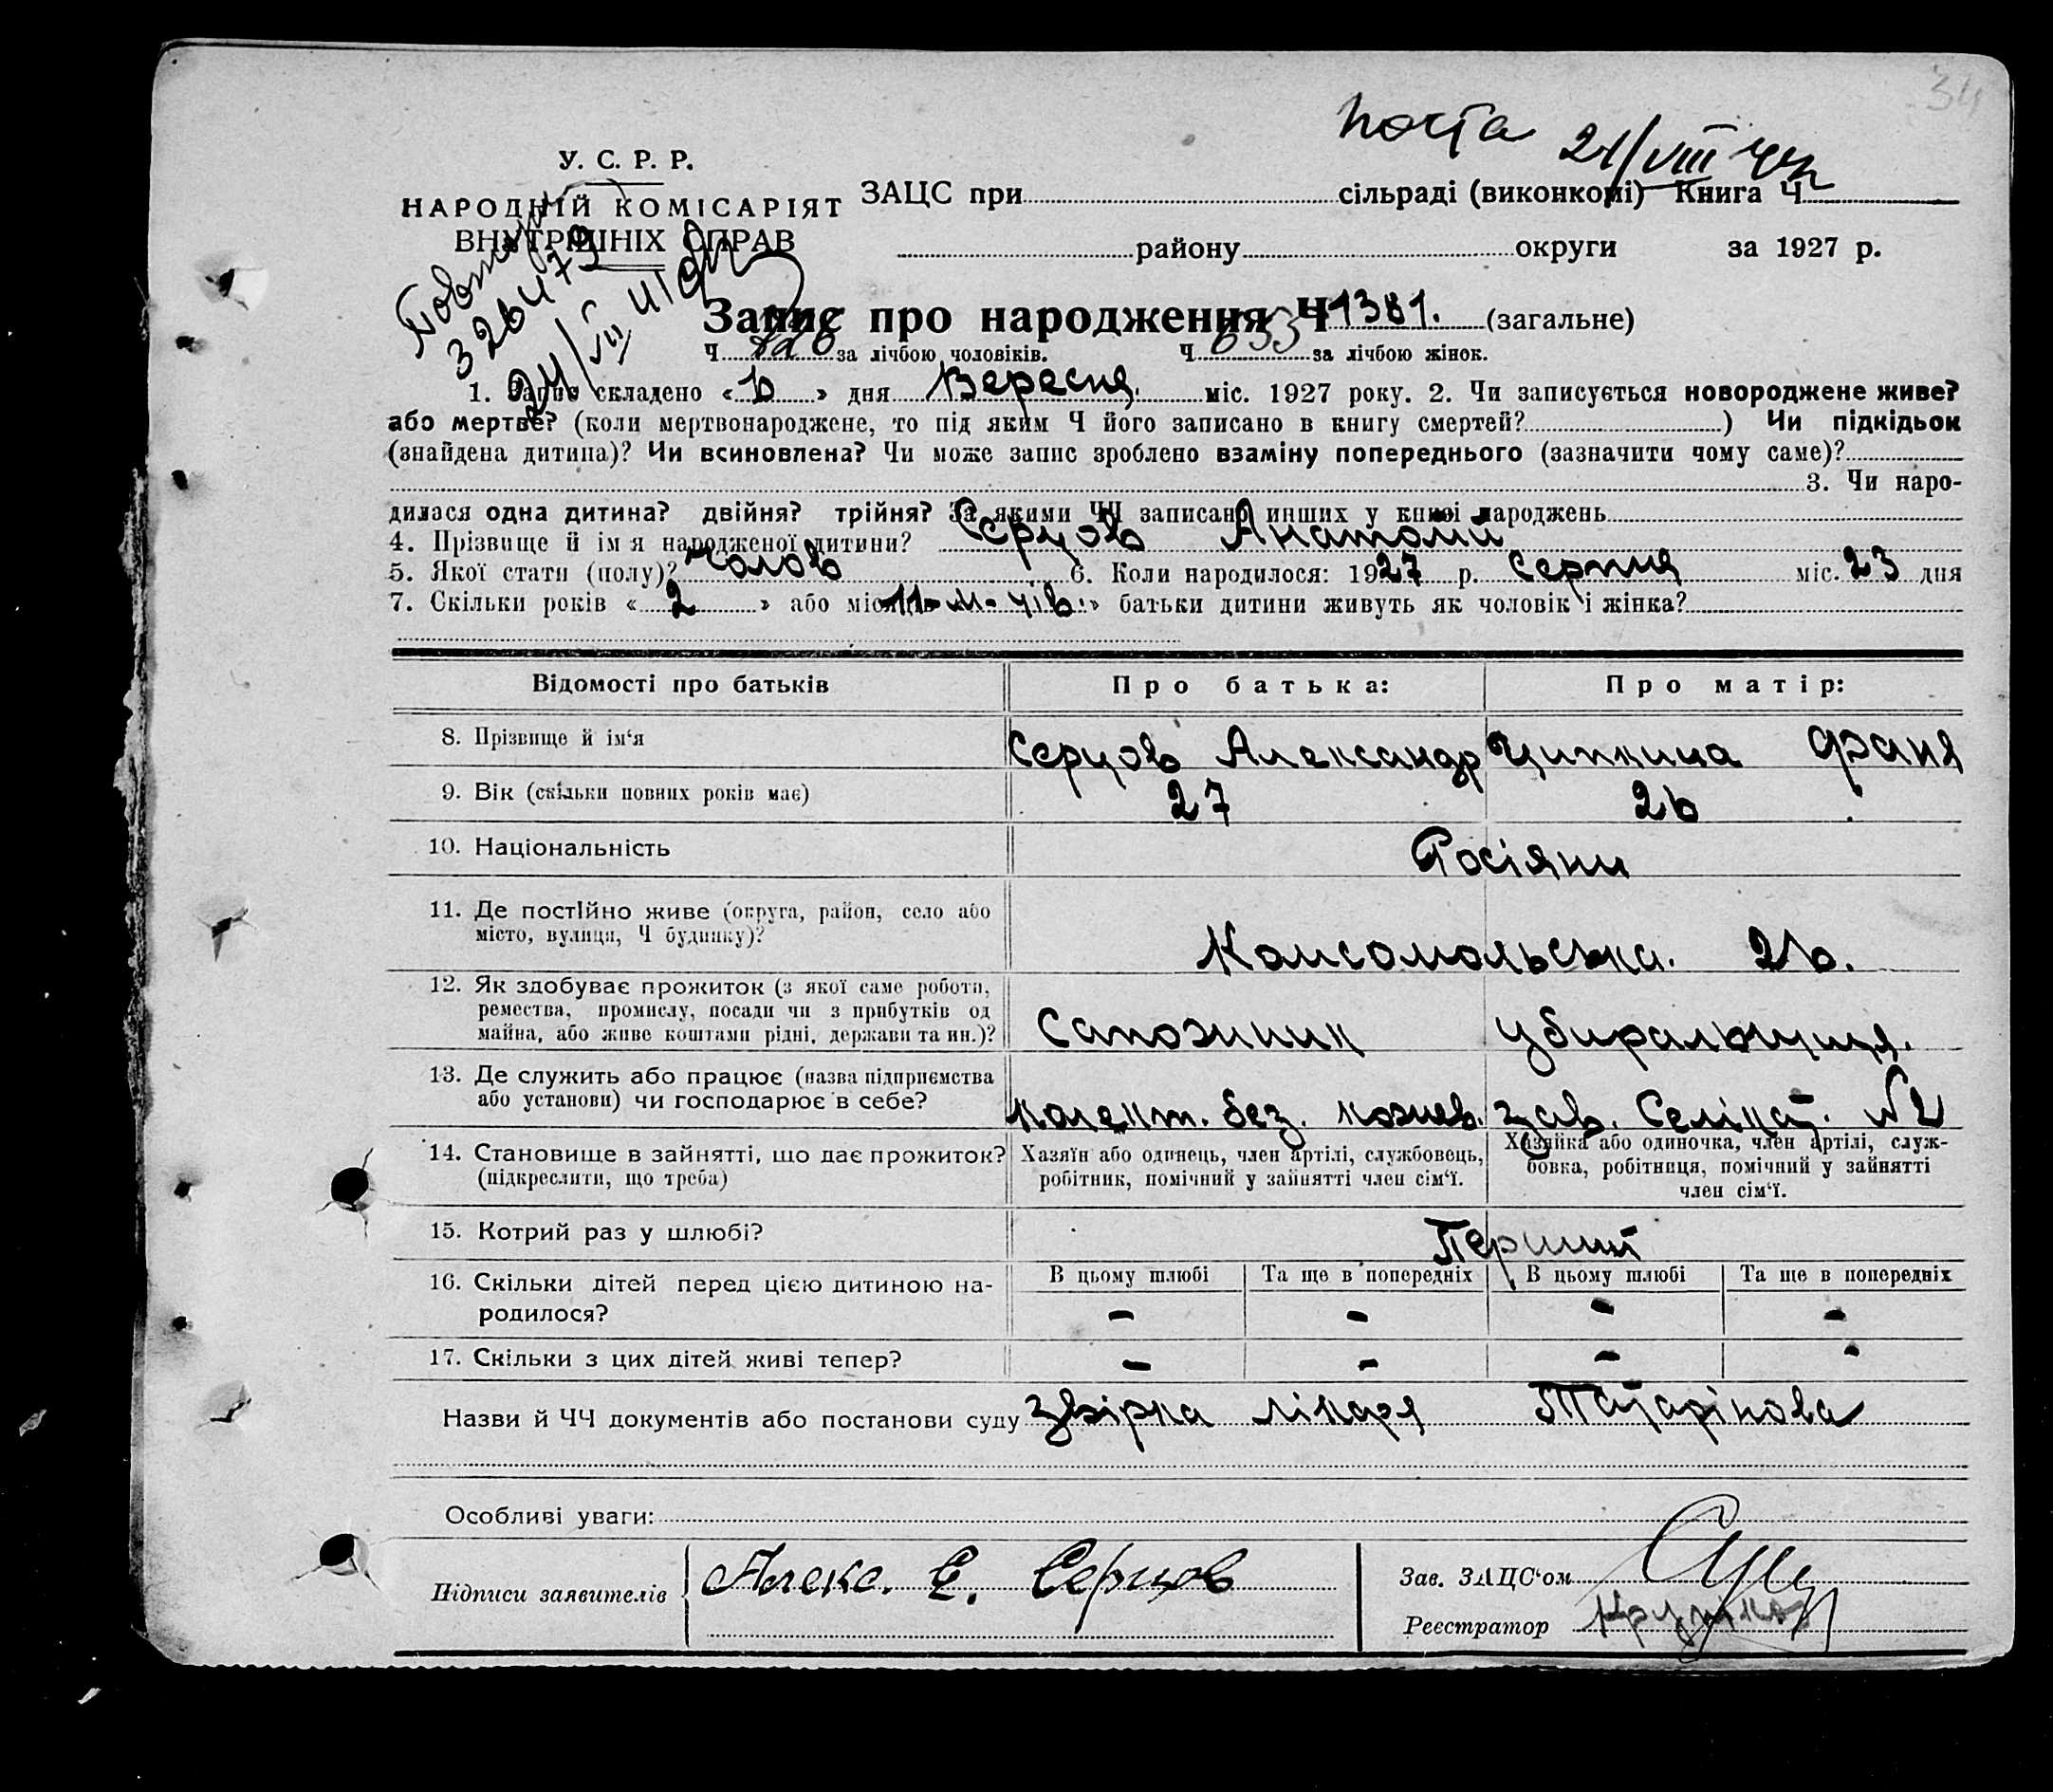 34
пошта 21/VIII
У. С. Р. Р.
НАРОДНІЙ КОМІСАРІЯТ
ВНУТРІШНІХ СПРАВ
ЗАЦС при сільраді (виконкомі) Книга Ч
району округи за 1927 р.
Запис про народження Ч 1381. (загальне)
Ч за лічбою чоловіків. Ч 653 за лічбою жінок.
1. Запис складено «6» дня Вересня міс. 1927 року. 2. Чи записується новороджене живе?
або мертве? (коли мертвонароджене, то під яким Ч його записано в книгу смертей? ) Чи підкідьок
(знайдена дитина)? Чи всиновлена? Чи може запис зроблено взаміну попереднього (зазначити чому саме)?
3. Чи наро-
дилася одна дитина? двійня? трійня? За якими ЧЧ записано инших у книзі народжень
4. Прізвище й ім'я народженої дитини? Серцов Анатолий
5. Якої стати (полу)? чолов 6. Коли народилося: 1927 р. серпня міс. 23 дня
7. Скільки років «2» або місяців 11 м-ців» батьки дитини живуть як чоловік і жінка?
Відомості про батьків Про батька: Про матір:
8. Прізвище й ім'я Серцов Александр Ципкина Фаня
9. Вік (скільки повних років має) 27 26
10. Національність Росіяни
11. Де постійно живе (округа, район, село або
місто, вулиця, Ч будинку)? Комсомольська. 26.
12. Як здобуває прожиток (з якої саме роботи,
ремества, промислу, посади чи з прибутків од
майна, або живе коштами рідні, держави та ин.)? Сапожник убиральниця.
13. Де служить або працює (назва підприємства
або установи) чи господарює в себе? колект. без. кожев. зав. Селікат. №2
14. Становище в зайнятті, що дає прожиток?
(підкреслити, що треба)
Хазяїн або одинець, член артілі, службовець,
робітник, помічний у зайнятті член сім'ї.
Хазяйка або одиночка, член артілі, служ-
бовка, робітниця, помічний у зайнятті
член сім'ї.
15. Котрий раз у шлюбі? Перший
В цьому шлюбі Та ще в попередніх В цьому шлюбі Та ще в попередніх
16. Скільки дітей перед цією дитиною на-
родилося? - - - -
17. Скільки з цих дітей живі тепер? - - - -
Назви й ЧЧ документів або постанови суду звірка лікаря Татарінова
Особливі уваги:
Підписи заявителів Алекс. Е. Серцов
Зав. ЗАЦС'ом
Реєстратор